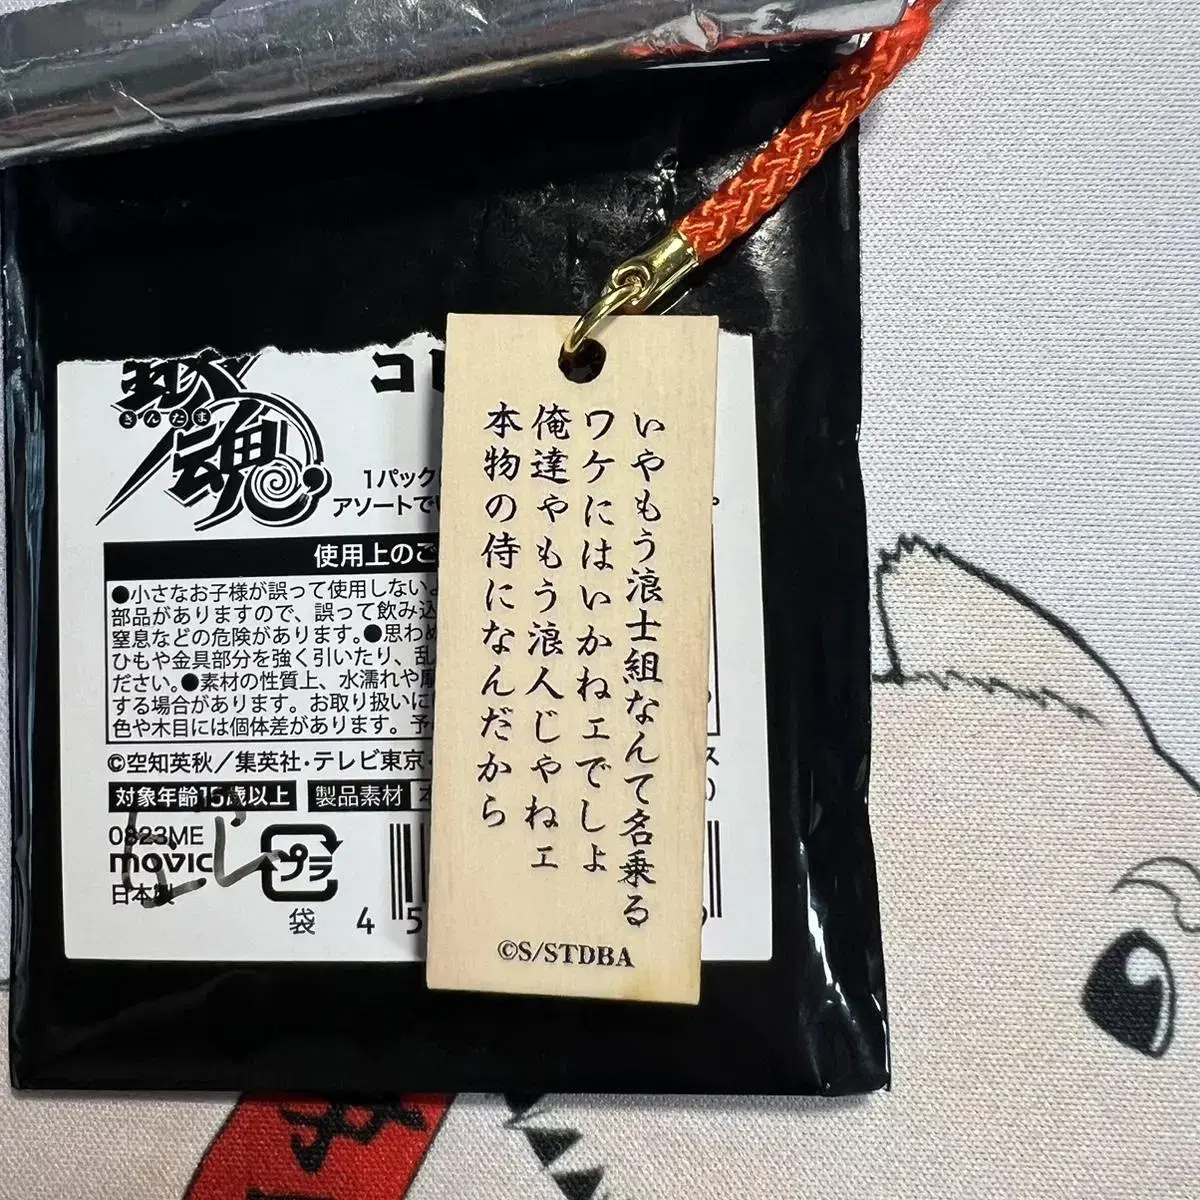 いやもう浪士組なんて名乗る
ワケにはいかねェでしょ
俺達ゃもう浪人じゃねェ
本物の侍になんだから
©S/STDBA
銀魂
ぎんたま
コレ
1パック
アソートで
使用上のご
●小さなお子様が誤って使用しないよ
部品がありますので、誤って飲み込
窒息などの危険があります。●思わぬ
ひもや金具部分を強く引いたり、乱
ださい。●素材の性質上、水濡れや摩
する場合があります。お取り扱いに
色や木目には個体差があります。予
©空知英秋/集英社・テレビ東京・
対象年齢15歳以上 製品素材
0823ME
movic
日本製
プラ
袋
4 5
9